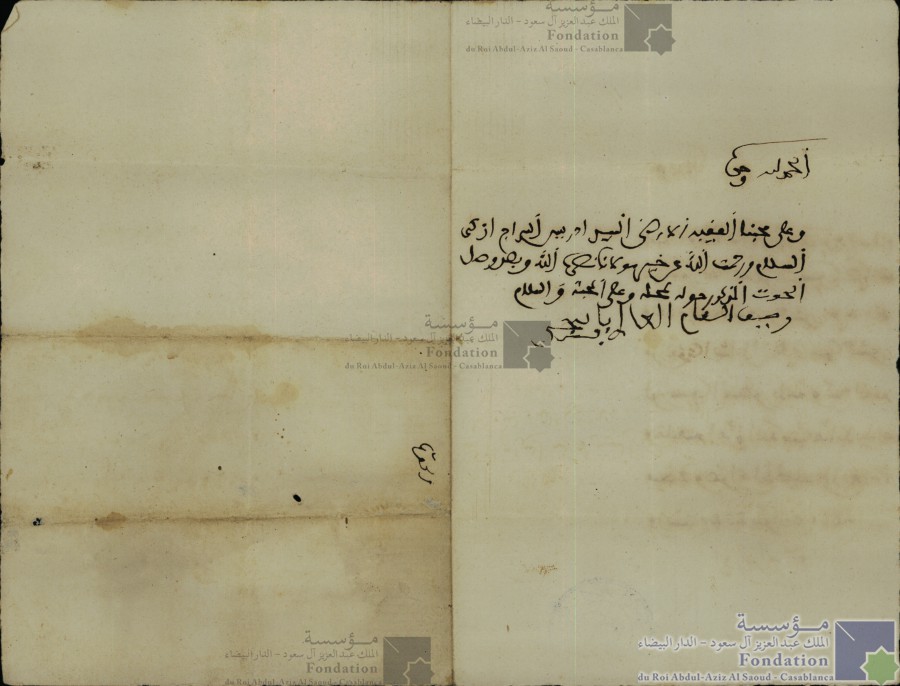 مؤسسة
الملك عبد العزيز آل سعود - الدار البيضاء
Fondation
du Roi Abdul-Aziz Al Saoud - Casablanca
الحمد لله وحده
وعلى محبنا الفقيه الارضى السيد ادريس السراج ازكى
السلام ورحمت الله عن خير مولانا نصره الله وبعد وصل
الحوت المذكور حوله لمحله وعلى المحبة والسلام
وصيف المقام العالي بالله
مؤسسة
الملك عبد العزيز آل سعود - الدار البيضاء
Fondation
du Roi Abdul-Aziz Al Saoud - Casablanca
مؤسسة
الملك عبد العزيز آل سعود - الدار البيضاء
Fondation
du Roi Abdul-Aziz Al Saoud - Casablanca
مؤسسة
الملك عبد العزيز آل سعود - الدار البيضاء
Fondation
du Roi Abdul-Aziz Al Saoud - Casablanca